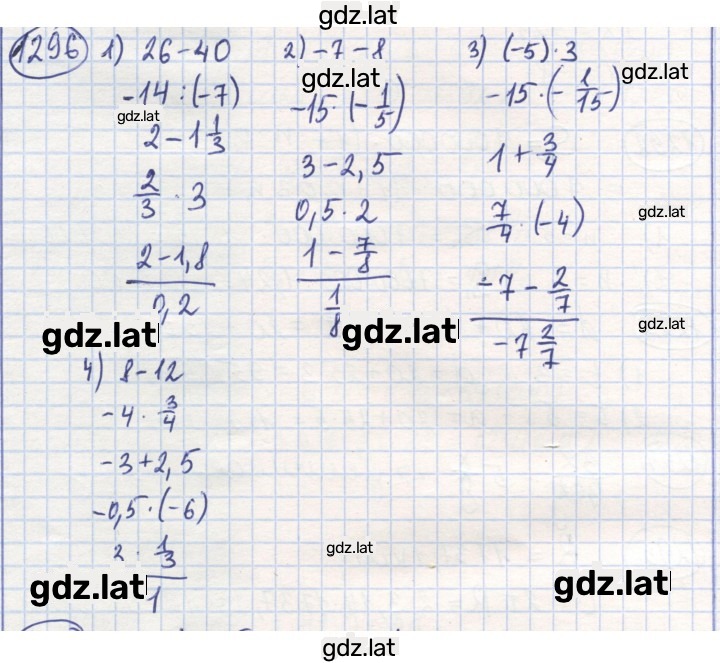 gdz.lat
1296 1) 26 - 40
- 14 : (- 7)
gdz.lat
2 - 1 1/3
2/3 · 3
2 - 1,8
0,2
gdz.lat
2) - 7 - 8
gdz.lat
- 15 · (- 1/5)
3 - 2,5
0,5 · 2
1 - 7/8
1/8
gdz.lat
3) (-5) · 3
gdz.lat
- 15 · (- 1/15)
1 + 3/4
7/4 · (- 4)
gdz.lat
- 7 - 2/7
- 7 2/7
gdz.lat
4) 8 - 12
- 4 · 3/4
- 3 + 2,5
- 0,5 · (- 6)
2 · 1/3
1
gdz.lat
gdz.lat
gdz.lat
gdz.lat